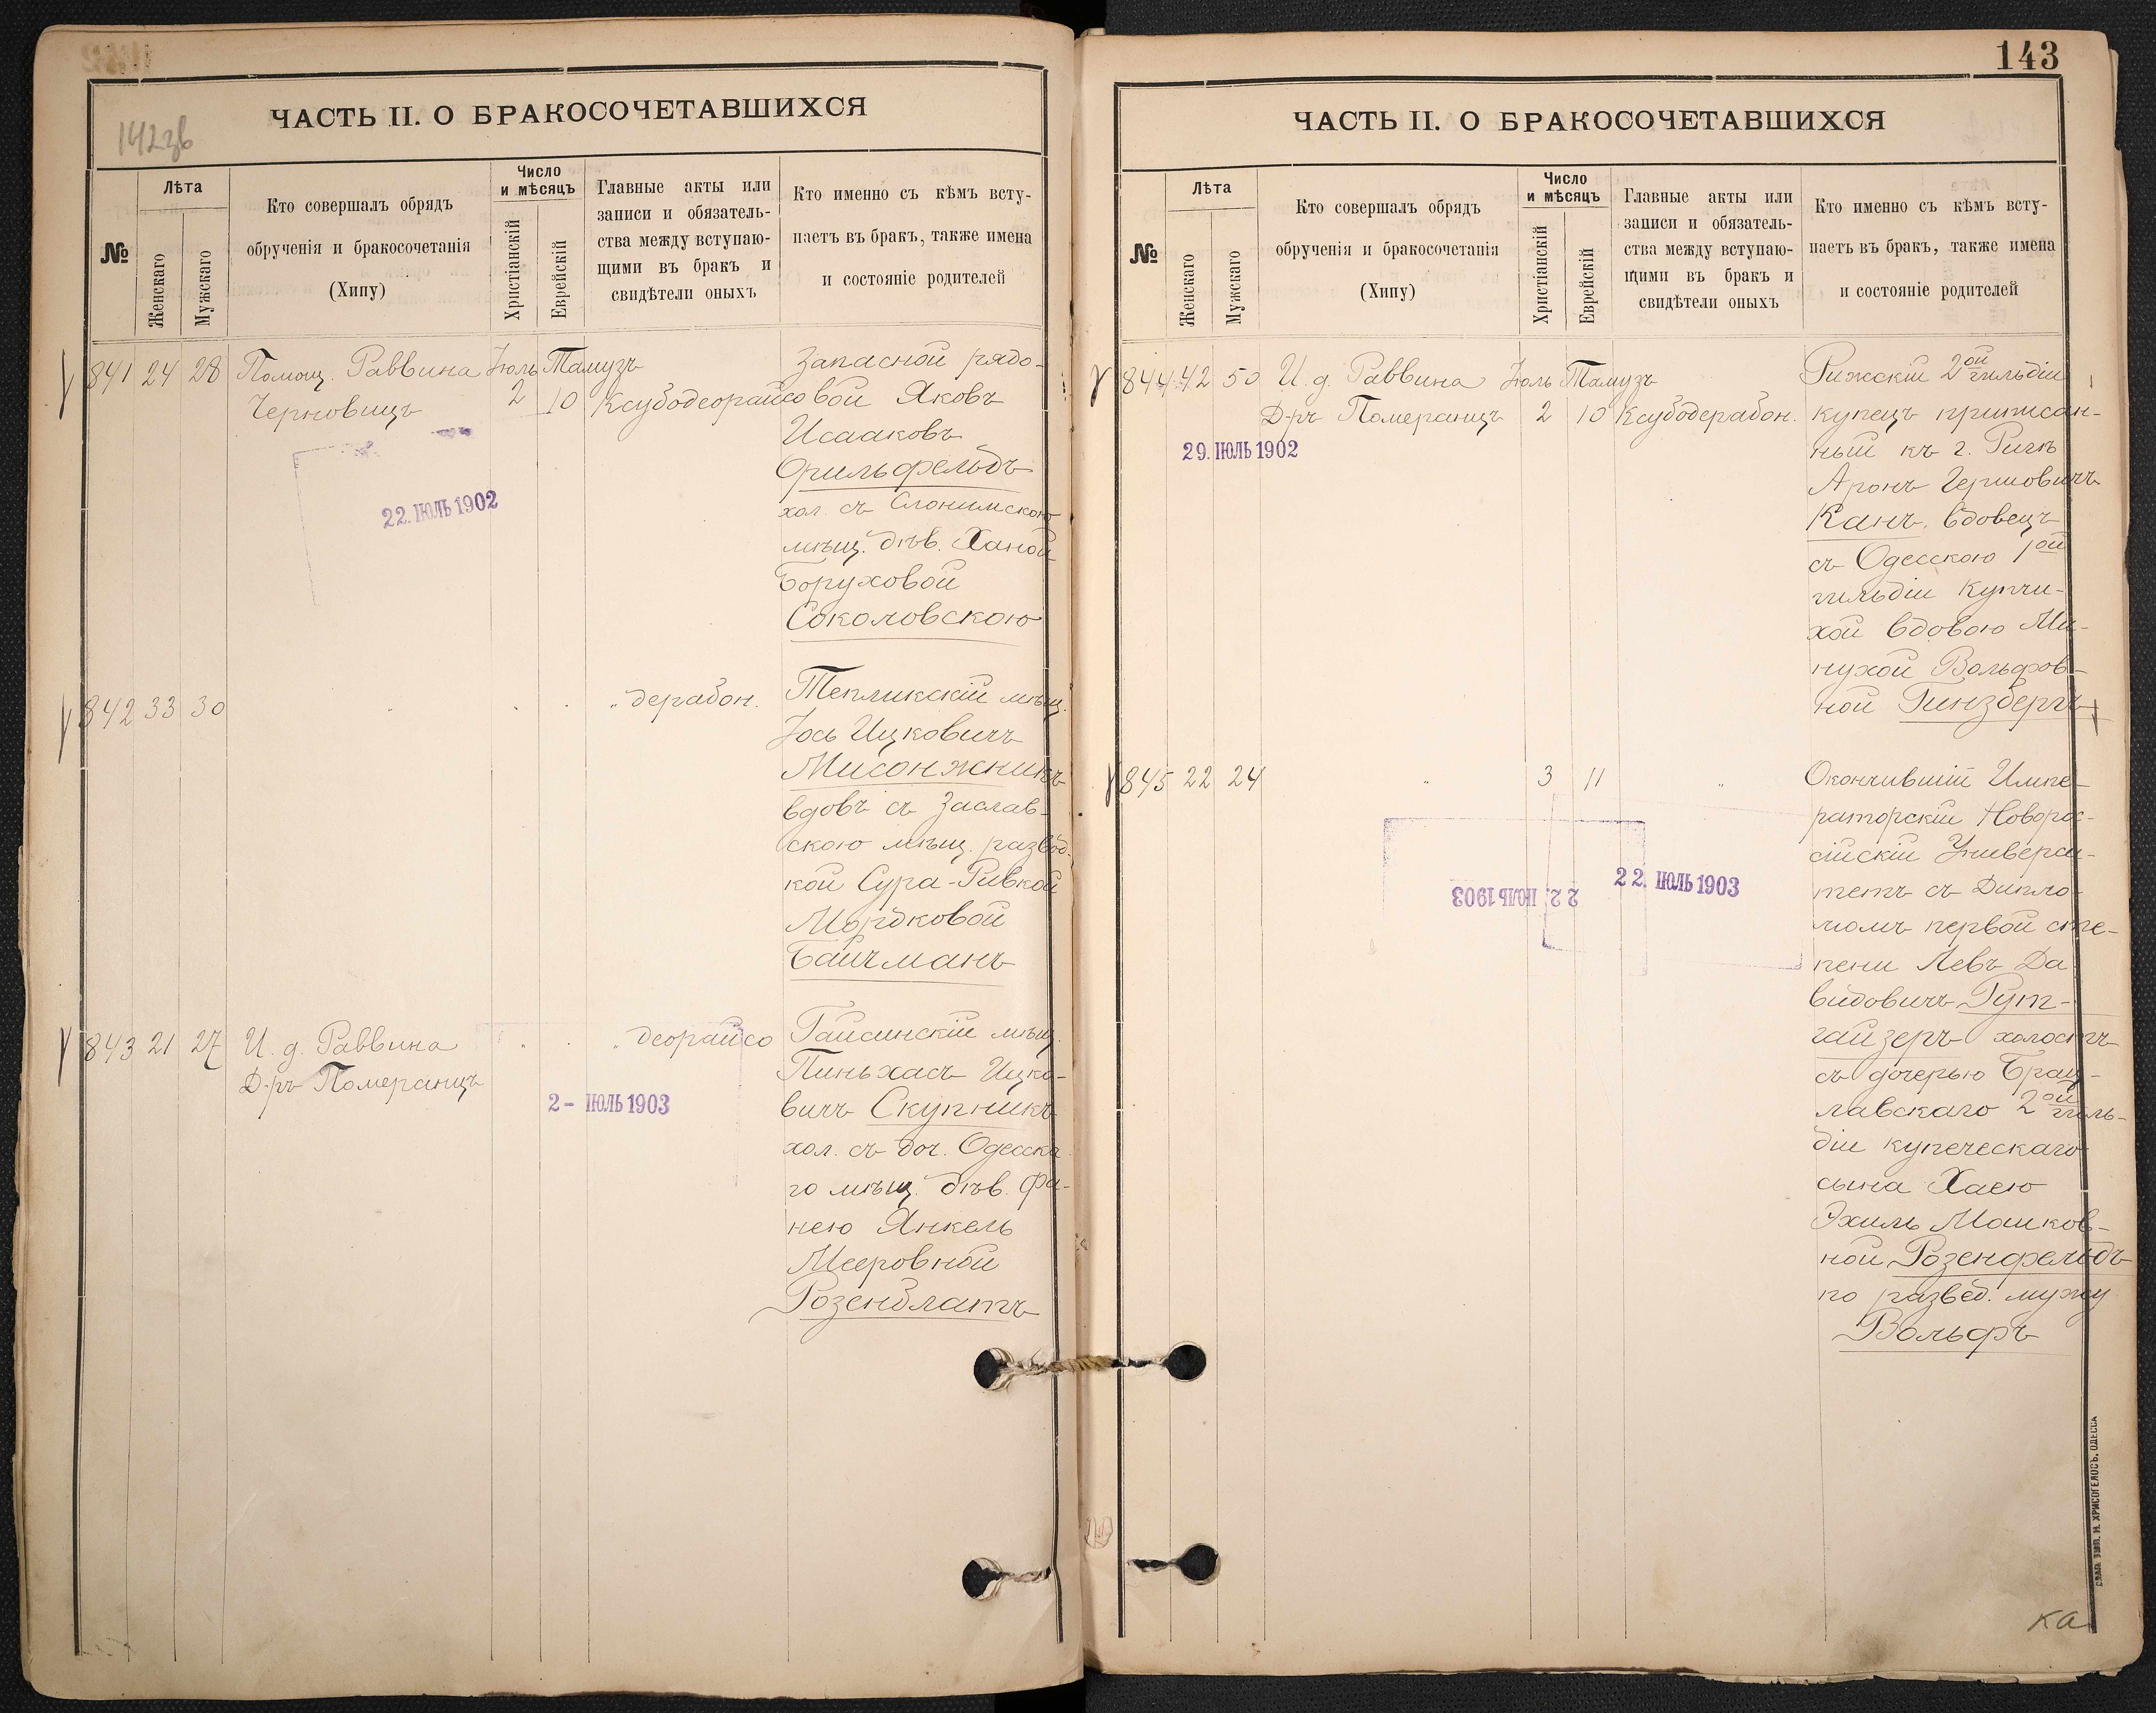 142зв
ЧАСТЬ II. О БРАКОСОЧЕТАВШИХСЯ
№
Лѣта
Женскаго
Мужскаго
Кто совершалъ обрядъ
обрученія и бракосочетанія
(Хипу)
Число
и мѣсяцъ
Христіанскій
Еврейскій
Главные акты или
записи и обязатель-
ства между вступаю-
щими въ бракъ и
свидѣтели оныхъ
Кто именно съ кѣмъ всту-
паетъ въ бракъ, также имена
и состояніе родителей
841 24 28 Помощ. Раввина Іюль Тамузъ
Черновицъ 2 10 Ксубодеорайсо
Запасной рядо-
вой Яковъ
Исааковъ
хол. съ Слонимскою
мѣщ. дѣв. Ханой
Боруховой
Соколовскою
22. ІЮЛЬ 1902
842 33 30 " " " " дерабон.
Тепликскій мѣщ.
Іось Ицковичъ
Мисонжникъ
вдовъ съ Заслав-
скою мѣщ. развод-
кой Сура-Ривкой
Мордковой
Байчманъ
843 21 27 И. д. Раввина " " " деорайсо
Д-ръ Померанцъ
2- ІЮЛЬ 1903
Гайсинскій мѣщ.
Пиньхасъ Ицко-
вичъ Скупникъ
хол. съ доч. Одесска
го мѣщ. дѣв. Фа-
нею Янкель
Мееровной
Розенблатъ
143
ЧАСТЬ II. О БРАКОСОЧЕТАВШИХСЯ
№
Лѣта
Женскаго
Мужскаго
Кто совершалъ обрядъ
обрученія и бракосочетанія
(Хипу)
Число
и мѣсяцъ
Христіанскій
Еврейскій
Главные акты или
записи и обязатель-
ства между вступаю-
щими въ бракъ и
свидѣтели оныхъ
Кто именно съ кѣмъ всту-
паетъ въ бракъ, также имена
и состояніе родителей
844 42 50 И. д. Раввина Іюль Тамузъ
Д-ръ Померанцъ 2 10 Ксубодерабон.
29. ІЮЛЬ 1902
Рижскій 2ой гильдіи
купецъ приписан-
ный къ г. Ригѣ
Аронъ Гершовичъ
Канъ, вдовецъ
съ Одесскою 1ой
гильдіи купчи-
хой вдовою Ми-
нухой Вольфов-
ной Гинзбергъ
845 22 24 " 3 11 "
22. ІЮЛЬ 1903
22. ІЮЛЬ 1903
Окончившій Импе-
раторскій Новорос-
сійскій Универси-
тетъ съ Дипло-
момъ первой сте-
пени Левъ Да
видовичъ Гут-
гайзеръ холостъ
съ дочерью Брац-
лавскаго 2ой гиль-
діи купеческаго
сына Хаею
Эхиль Мошков-
ной Розенфельдъ
по развед. мужу
Вольфъ
ка